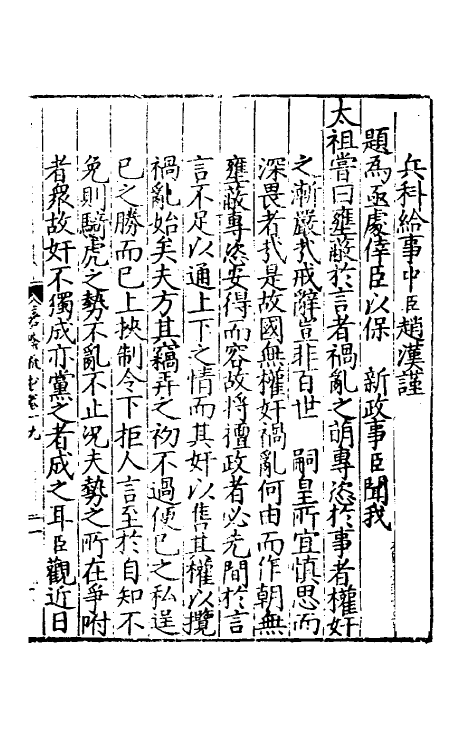 兵科給事中臣趙漢謹
題為亟處倖臣以保　新政事臣聞我
太祖嘗曰壅蔽於言者禍亂之萌專恣於事者權奸
之漸嚴哉戒辭豈非百世　嗣皇所宜慎思而
深畏者哉是故國無權奸禍亂何由而作朝無
壅蔽專恣安得而容故將擅政者必先間於言
言不足以通上下之情而其奸以售其權以攬
禍亂始矣夫方其竊弄之初不過便己之私逞
己之勝而已上挾制令下拒人言至於自知不
免則騎虎之勢不亂不止況夫勢之所在爭附
者衆故奸不獨成亦黨之者成之耳臣觀近日